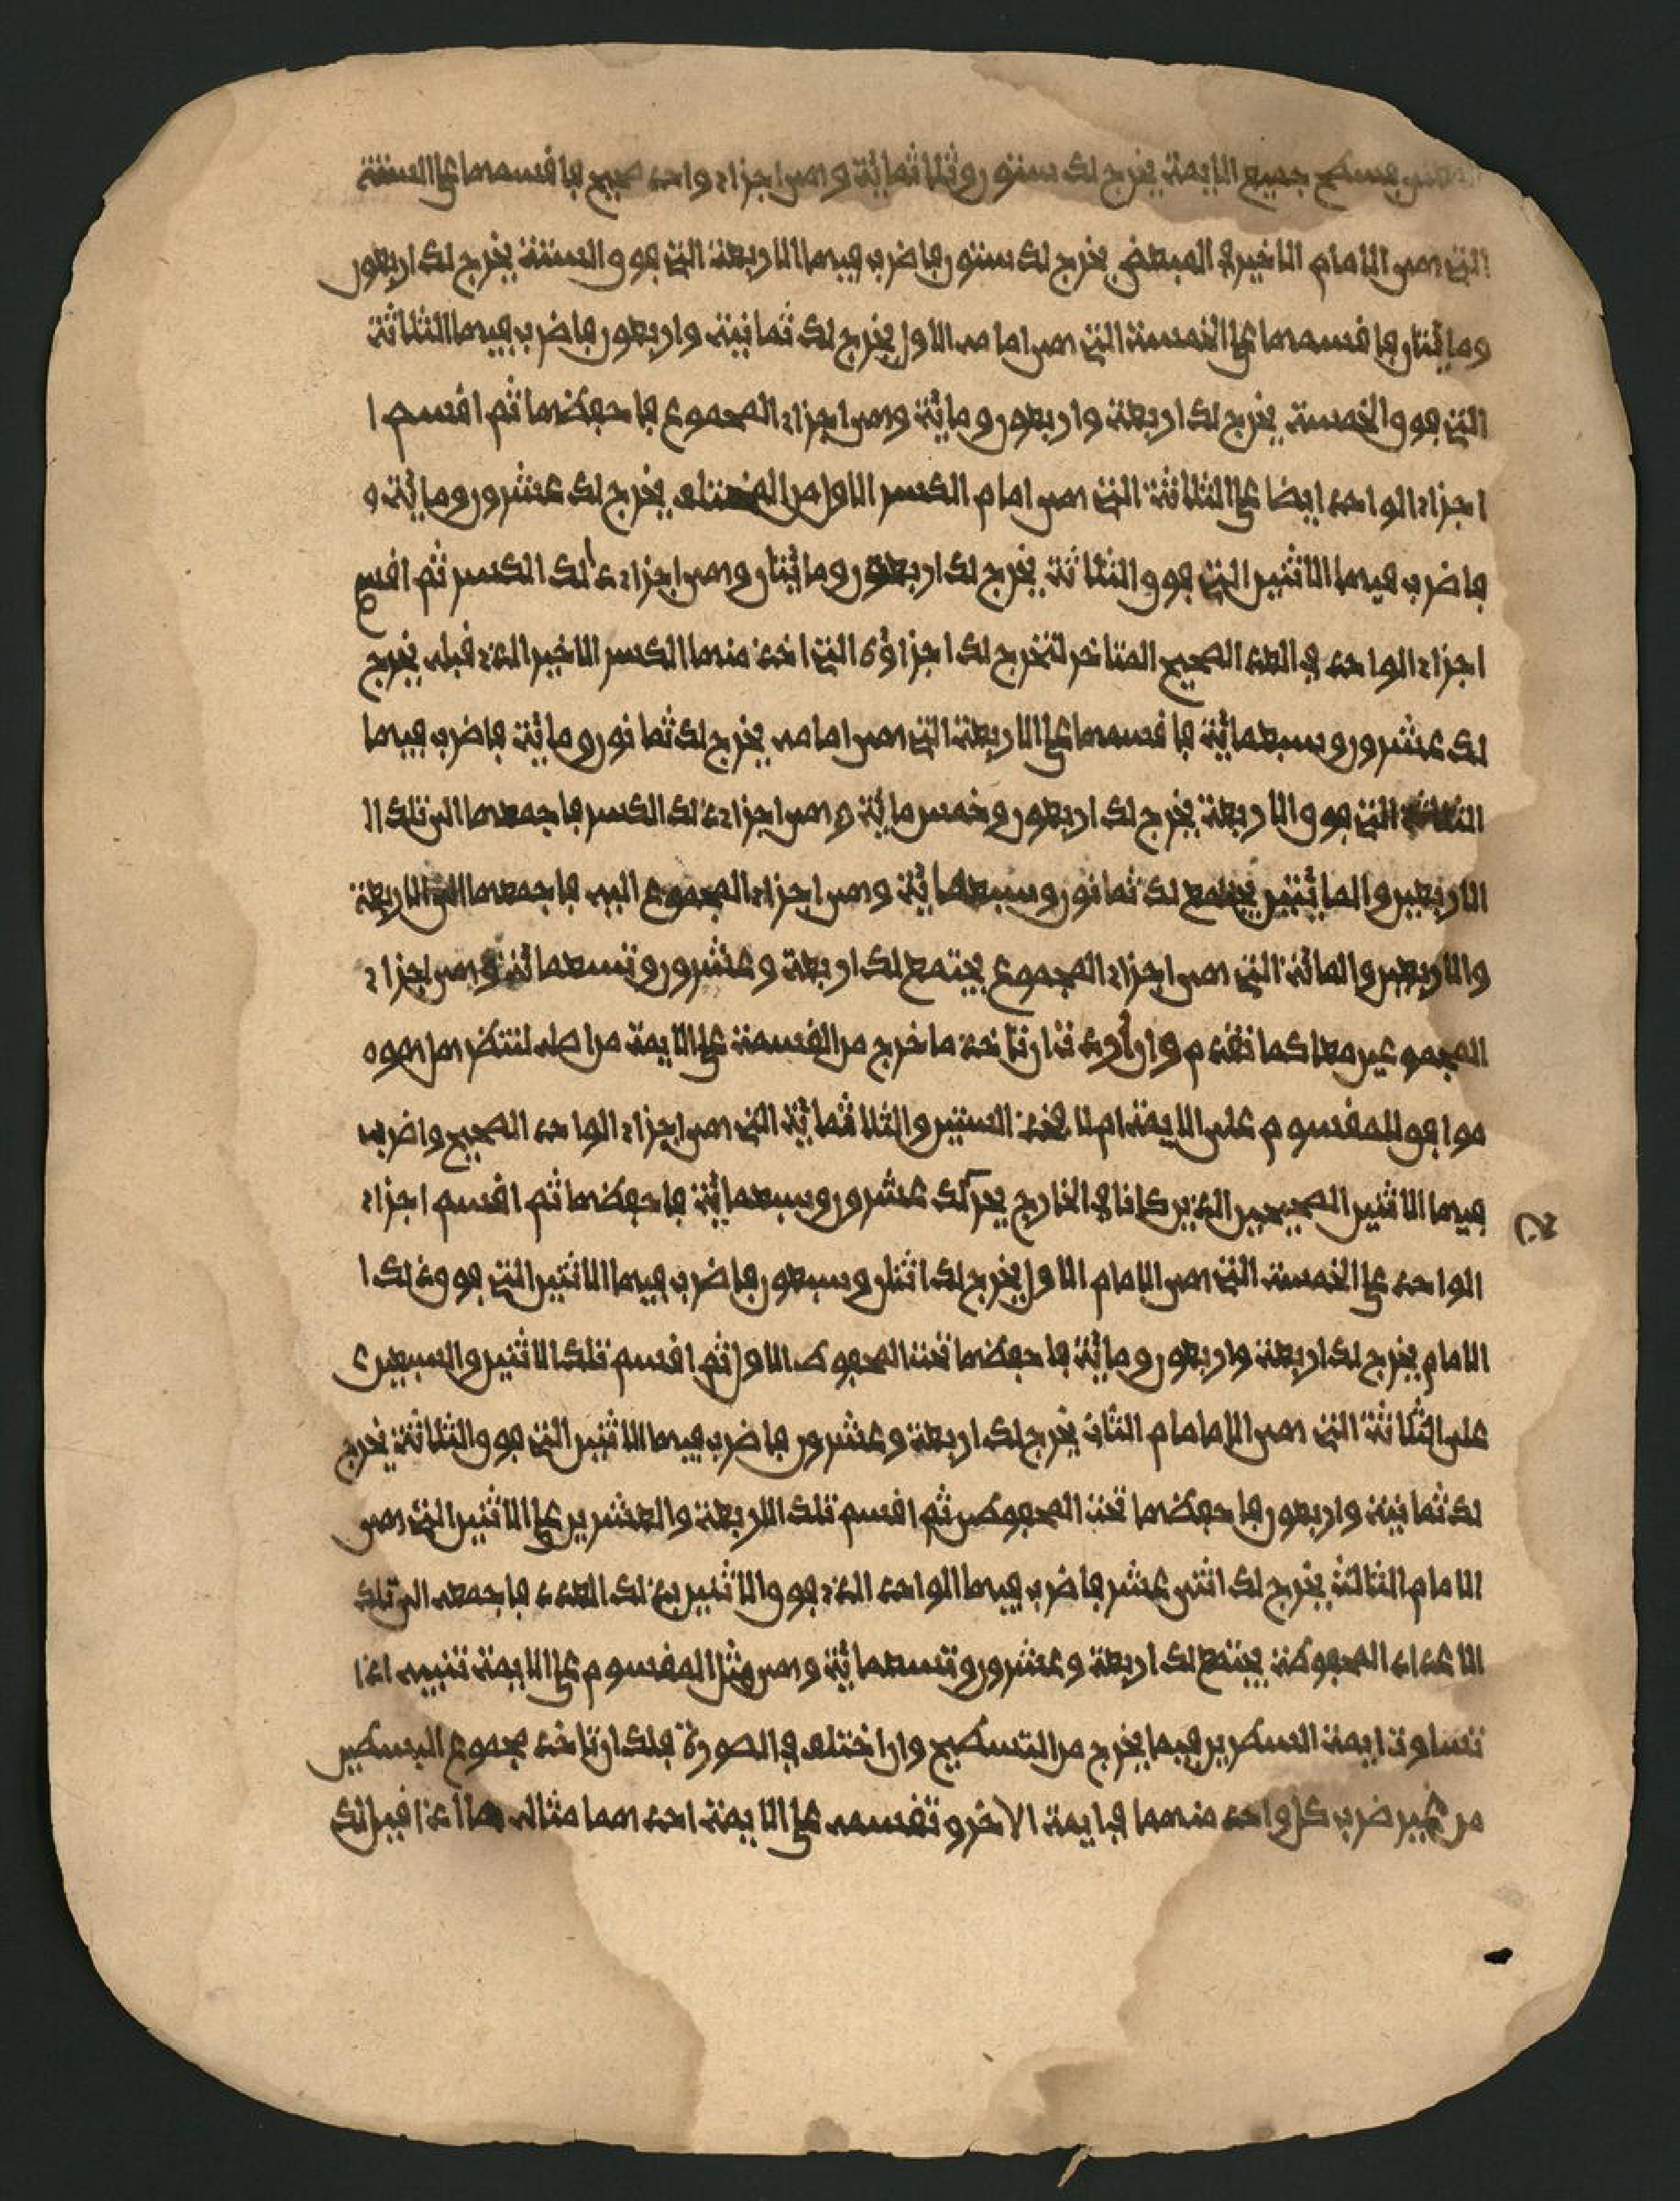 المبعض بسطح جميع الايمة يخرج لك ستون وثلاثمائة وهي اجزاء واحد صحيح فاقسمها على الستة
التي هي الامام الاخير في المبعض يخرج لك ستون فاضرب فيها الاربعة التي فوق الستة يخرج لك اربعون
ومايتان فاقسمها على الخمسة التي هي امامه الاول يخرج لك ثمانية واربعون فاضرب فيها الثلاثة
التي فوق الخمسة يخرج لك اربعة واربعون ومائة وهي اجزاء المجموع فاحفظها ثم اقسم ا
اجزاء الواحد ايضا على الثلاثة التي هي امام الكسر الاول من المختلف يخرج لك عشرون ومائة و
فاضرب فيها الاثنين التي فوق الثلاثة يخرج لك اربعون ومائتان وهي اجزاء ذلك الكسر ثم اقسم
اجزاء الواحد في العدد الصحيح المتاخر لتخرج لك اجزاؤه التي اخذ منها الكسر الاخير الذي قبله يخرج
لك عشرون وسبعمائة فاقسمها على الاربعة التي هي امامه يخرج لك ثمانون ومائة فاضرب فيها
الثلاثة التي فوق الاربعة يخرج لك اربعون وخمس مائة وهي اجزاء ذلك الكسر فاجمعها الى تلك ا
الاربعين والمائتين يجتمع لك ثمانون وسبعمائة وهي اجزاء المجموع اليه فاجمعها الى الاربعة
والاربعين والمائة التي هي اجزاء المجموع يجتمع لك اربعة وعشرون وتسعمائة وهي اجزاء
المجموعين معا كما تقدم وان اردت ان تاخذ ما خرج من القسمة على الايمة من اصله لتنظر هل هو
موافق للمقسوم على الايمة ام لا فخذ الستين والثلاثمائة التي هي اجزاء الواحد الصحيح واضرب
فيها الاثنين الصحيحين الذين كانا في الخارج يخرج لك عشرون وسبعمائة فاحفظها ثم اقسم اجزاء
الواحد على الخمسة التي هي الامام الاول يخرج لك اثنان وسبعون فاضرب فيها الاثنين التي فوق ذلك ا
الامام يخرج لك اربعة واربعون ومائة فاحفظها تحت المحفوظ الاول ثم اقسم تلك الاثنين والسبعين
على الثلاثة التي هي الامام الثاني يخرج لك اربعة وعشرون فاضرب فيها الاثنين التي فوق الثلاثة يخرج
لك ثمانية واربعون فاحفظها تحت المحفوظين ثم اقسم تلك الاربعة والعشرين على الاثنين التي هي
الامام الثالث يخرج لك اثنى عشر فاضرب فيها الواحد الذي فوق الاثنين بذلك العدد فاجمعه الى تلك
الاعداد المحفوظة يجتمع لك اربعة وعشرون وتسعمائة وهي مثل المقسوم على الايمة تنبيه اذا
تساوت ايمة السطرين فيما يخرج من التسطيح وان اختلف في الصورة فلك ان تاخذ مجموع البسطين
من غير ضرب كل واحد منهما في ايمة الاخر وتقسمه على الايمة احدهما مثاله هذا اذا قيل لك